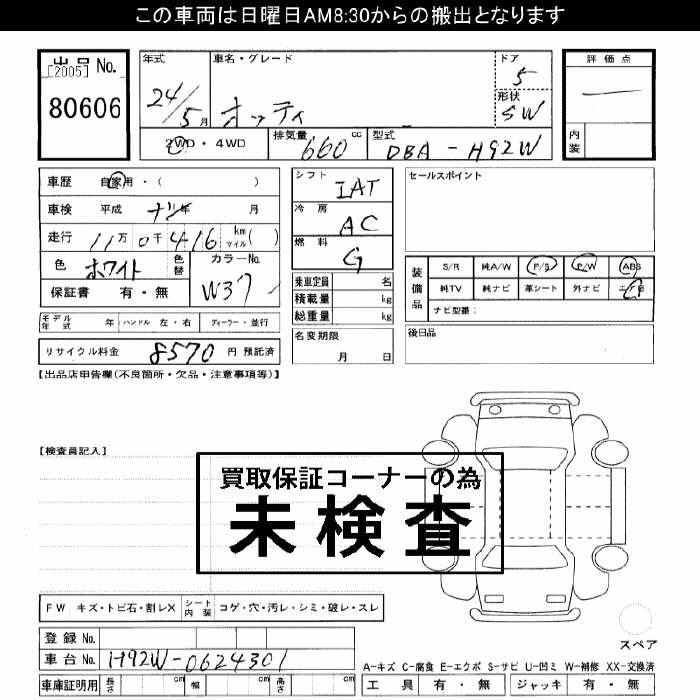 この車両は日曜日AM8:30からの搬出となります
出品No.
[2005]
80606
年式 24/5月
車名・グレード オッティ
ドア 5
形状 SW
2WD・4WD
排気量 660 cc
型式 DBA-H92W
評価点
内装
車歴 自家用・( )
車検 平成 年 月
走行 11万0千416 km マイル( )
色 ホワイト 色替 カラーNo. W37
保証書 有・無
シフト IAT
冷房 AC
燃料 G
乗車定員 名
積載量 kg
総重量 kg
名変期限 月 日
セールスポイント
装備品 S/R 純A/W P/S P/W ABS
純TV 純ナビ 革シート 外ナビ
ナビ型番:
後日品
モデル年式 年 ハンドル 左・右 ディーラー・並行
リサイクル料金 8570 円 預託済
【出品店申告欄(不良箇所・欠品・注意事項等)】
【検査員記入】
買取保証コーナーの為
未検査
FW キズ・トビ石・割レX シート内装 コゲ・穴・汚レ・シミ・破レ・スレ
スペア
登録No.
車台No. H92W-0624301
A-キズ C-腐食 E-エクボ S-サビ U-凹ミ W-補修 XX-交換済
車庫証明用 長さ cm 幅 cm 高さ cm
工具 有・無 ジャッキ 有・無